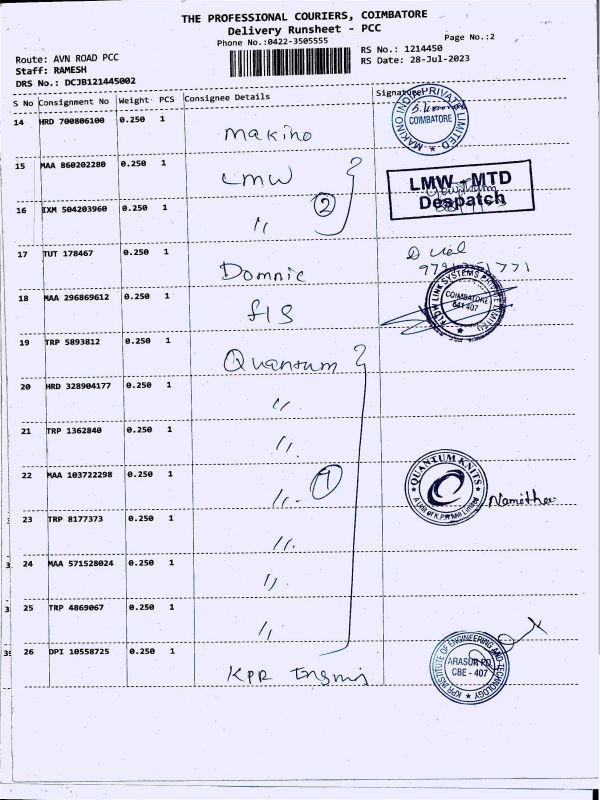 THE PROFESSIONAL COURIERS, COIMBATORE
Delivery Runsheet - PCC
Phone No.:0422-3505555
Page No.:2
Route: AVN ROAD PCC
RS No.: 1214450
Staff: RAMESH
RS Date: 28-Jul-2023
DRS No.: DCJB121445002
S No Consignment No Weight PCS Consignee Details Signature
14 HRD 700806100 0.250 1 Makino
MAKINO INDIA PRIVATE LIMITED
COIMBATORE
15 MAA 860202280 0.250 1 LMW
LMW - MTD
Despatch
16 IXM 504203960 0.250 1 〃 2
17 TUT 178467 0.250 1 Domnic
18 MAA 296869612 0.250 1 fIS
LINK SYSTEMS PRIVATE LIMITED
COIMBATORE
641 407
19 TRP 5893812 0.250 1 Quantum
20 HRD 328904177 0.250 1 〃
21 TRP 1362840 0.250 1 〃
22 MAA 103722298 0.250 1 〃 7
QUANTUM KNITS
A Unit of K.P.R Mill Limited
Namitha
23 TRP 8177373 0.250 1 〃
24 MAA 571528024 0.250 1 〃
25 TRP 4869067 0.250 1 〃
26 DPI 10558725 0.250 1 KPR
KPR INSTITUTE OF ENGINEERING AND TECHNOLOGY
ARASUR PO,
CBE - 407